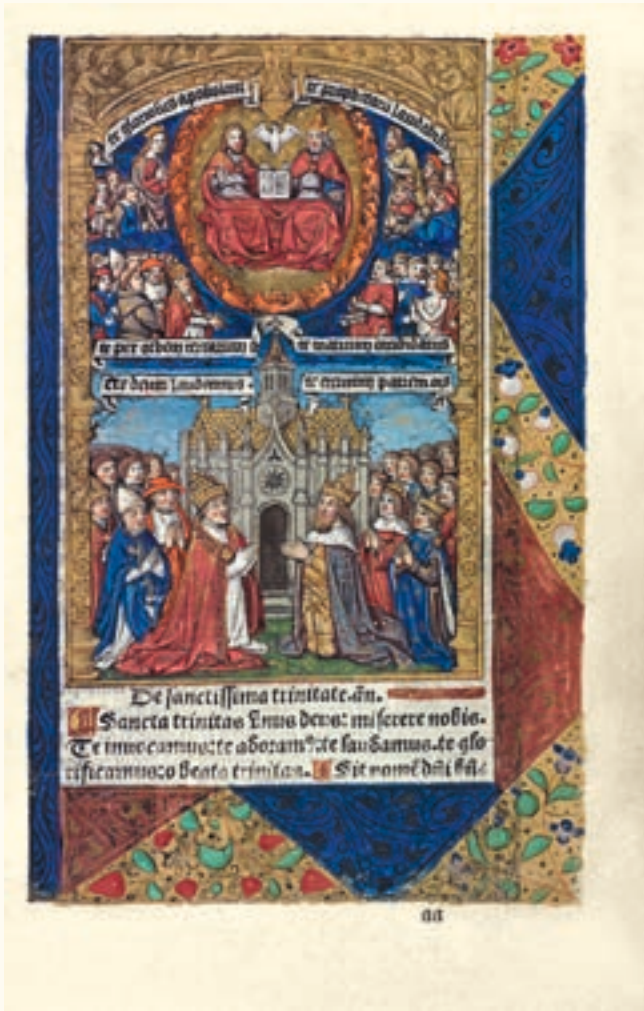 te gloriosus apostolorum
te prophetarum laudabilis
te per orbem terrarum
te martirum candidatus
Te deum laudamus
te eternum patrem ois
De sanctissima trinitate. añ.
Sancta trinitas vnus deus: miserere nobis.
Te inuocamus: te adoram⁹: te laudamus. te glo
rificamus: o beata trinitas. Sit nomē dñi
aa